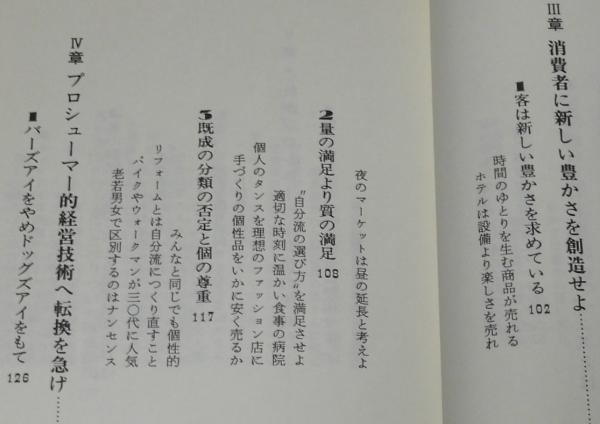 III章 消費者に新しい豊かさを創造せよ……
1客は新しい豊かさを求めている 102
時間のゆとりを生む商品が売れる
ホテルは設備より楽しさを売れ
夜のマーケットは昼の延長と考えよ
2量の満足より質の満足 108
〝自分流の選び方〟を満足させよ
適切な時刻に温かい食事の病院
個人のタンスを理想のファッション店に
手づくりの個性品をいかに安く売るか
3既成の分類の否定と個の尊重 117
みんなと同じでも個性的
リフォームとは自分流につくり直すこと
バイクやウォークマンが三〇代に人気
老若男女で区別するのはナンセンス
IV章 プロシューマー的経営技術へ転換を急げ……
1バーズアイをやめドッグズアイをもて 126